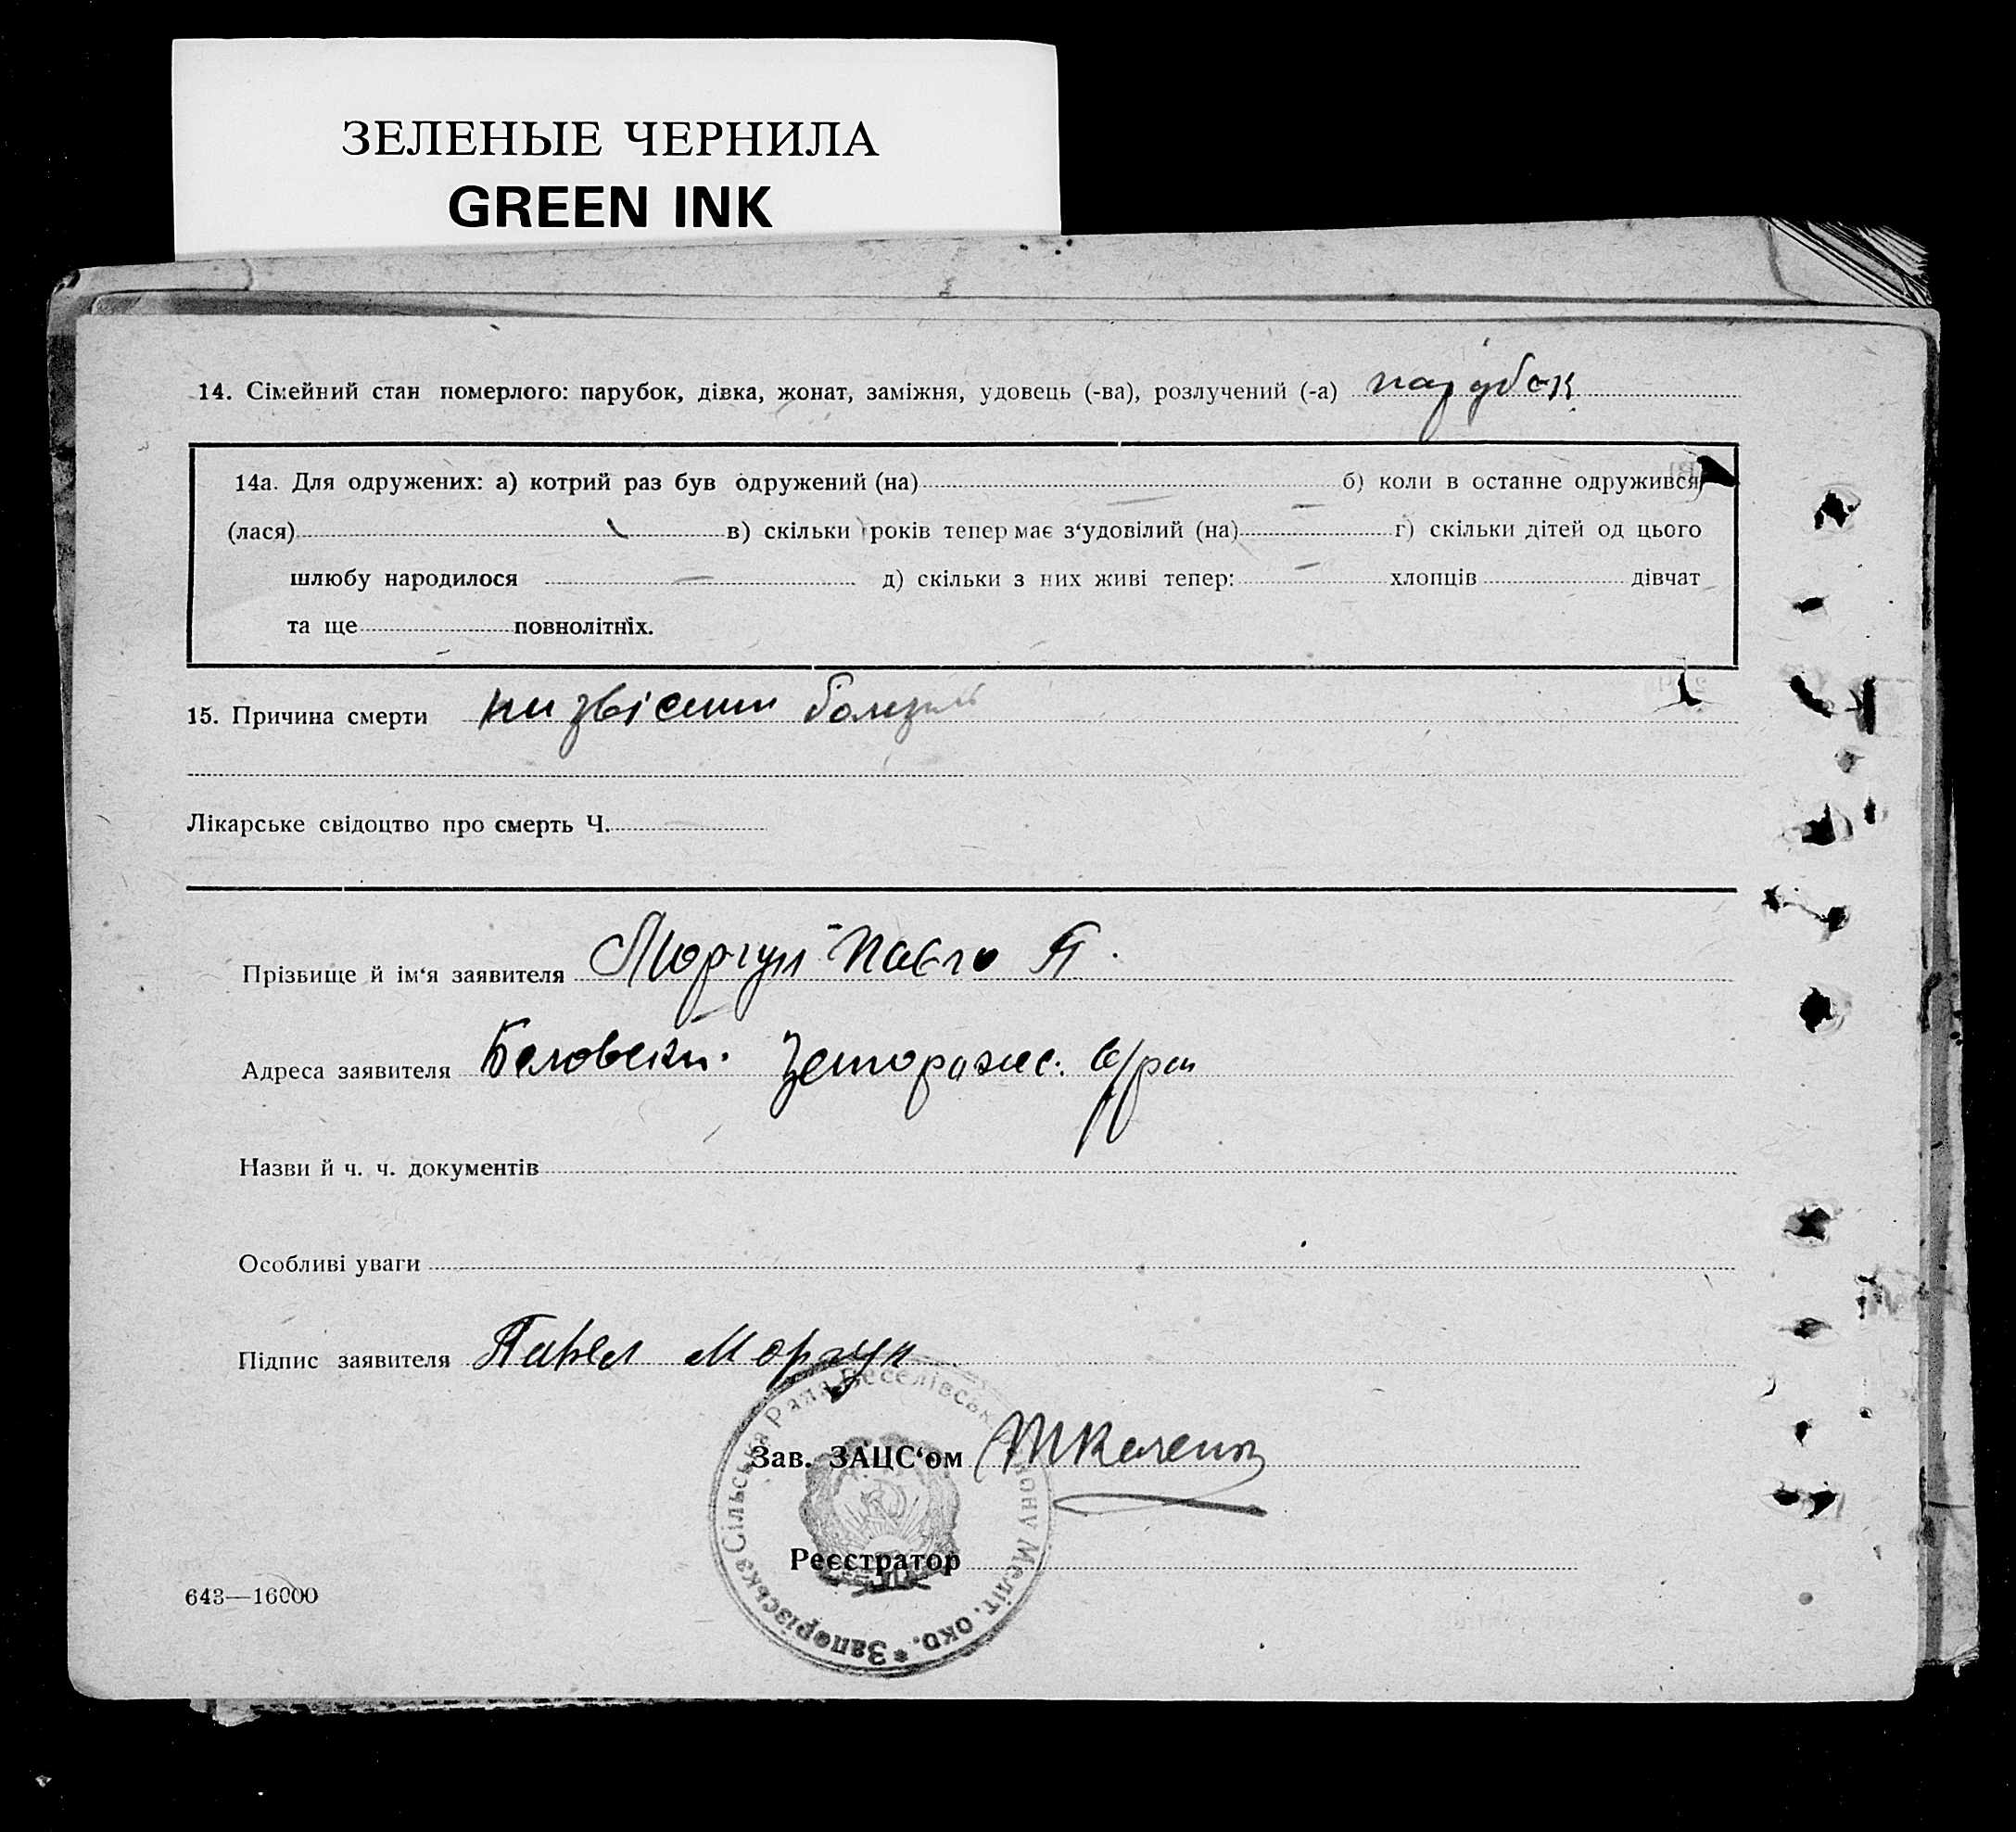 ЗЕЛЕНЫЕ ЧЕРНИЛА
GREEN INK
14. Сімейний стан померлого: парубок, дівка, жонат, заміжня, удовець (-ва), розлучений (-а) парубок
14а. Для одружених: а) котрий раз був одружений (на) б) коли в останне одружився
(лася) в) скільки років тепер має з‘удовілий (на) г) скільки дітей од цього
шлюбу народилося д) скільки з них живі тепер: хлопців дівчат
та ще повнолітніх.
15. Причина смерти
Лікарське свідоцтво про смерть Ч.
Прізьвище й ім‘я заявителя Моргун Павло П.
Адреса заявителя с/ради
Назви й ч. ч. документів
Особливі уваги
Підпис заявителя Павел Моргун
Зав. ЗАЦС‘ом
Реєстратор
* Запорізська Сільська Рада Веселівськ йону Меліт. окр.
643—16000